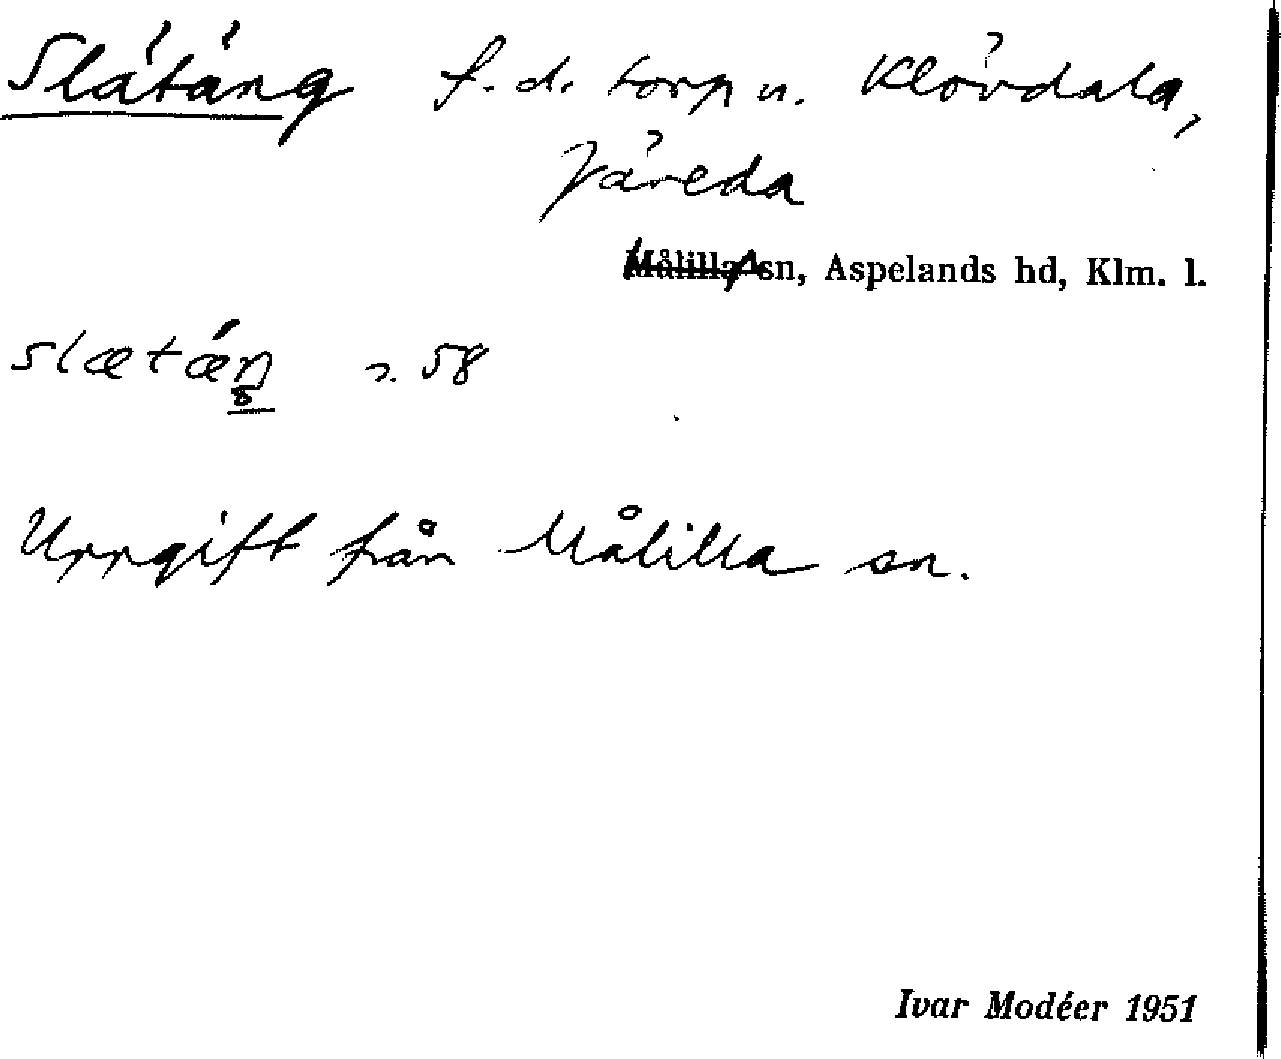 Slätäng f.d. torp u. Klövdala,
Järeda
Målilla sn, Aspelands hd, Klm. l.
slætæŋ 2. 58
Uppgift från Målilla sn.
Ivar Modéer 1951